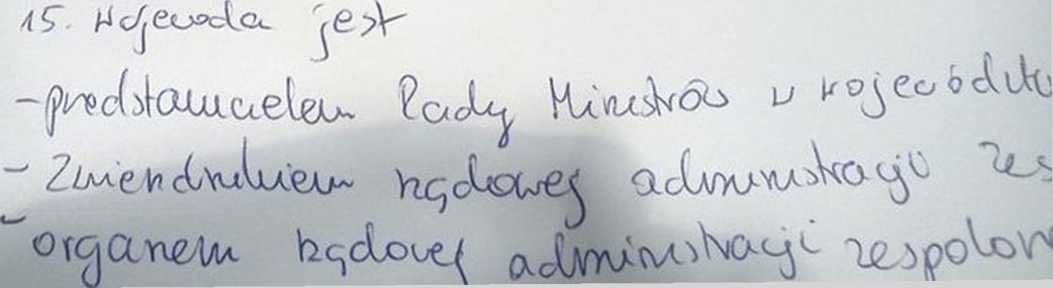 15. Wojewoda jest
- przedstawicielem Rady Ministrów w wojewódz
- Zwierzchnikiem rządowej administracji zes
- organem rządowej administracji zespolon